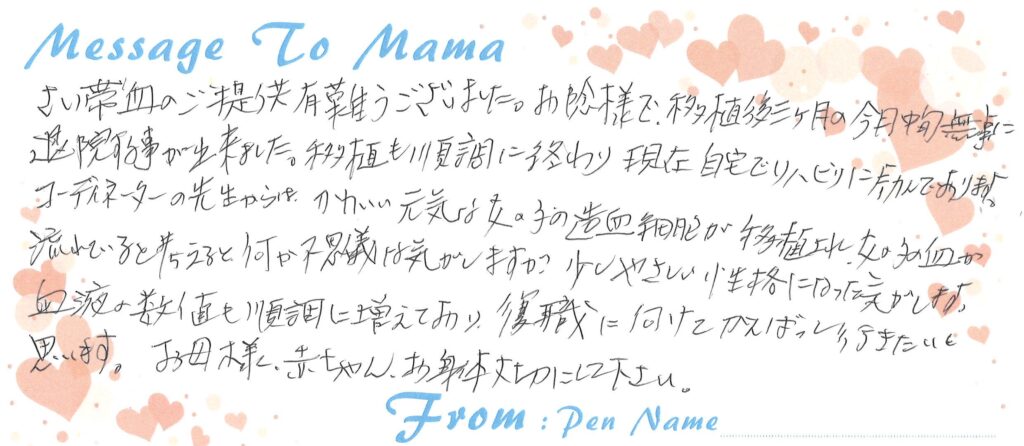 Message To Mama
さい帯血のご提供有難うございました。お陰様で、移植後三ヶ月の今月中旬無事に
退院する事が出来ました。移植も順調に終わり現在自宅でリハビリに励んでおります。
コーディネーターの先生からは、かわいい元気な女の子の造血細胞が移植され、女の子の血が
流れていると考えると何か不思議な気がしますが、少しやさしい性格になった気がします。
血液の数値も順調に増えており、復職に向けてがんばって行きたいと
思います。 お母様、赤ちゃん、お身体大切にして下さい。
From : Pen Name